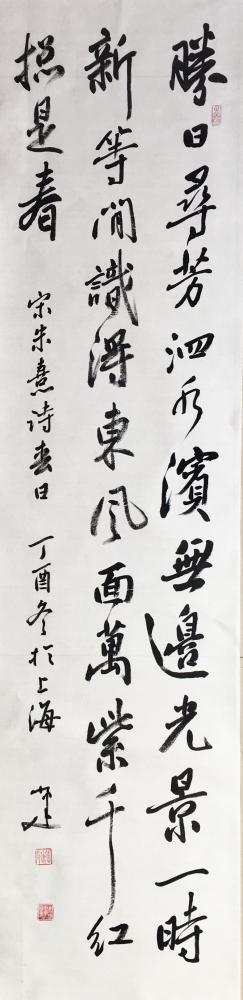 勝日尋芳泗水濱無邊光景一時
新等閒識得東風面萬紫千红
總是春
宋朱熹诗春日 丁酉冬於上海